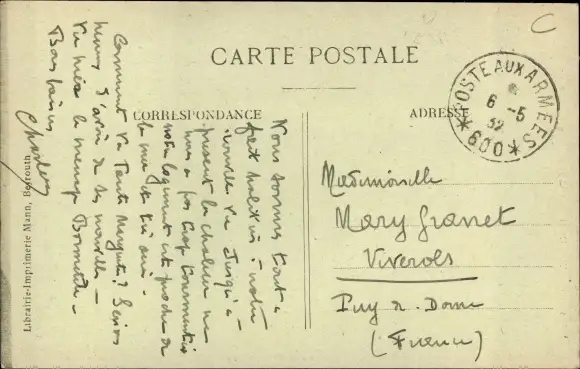 CARTE POSTALE
CORRESPONDANCE
ADRESSE
POSTE AUX ARMEES
6 -5
32
* 600 *
Nous sommes tout à
fait habitués à notre
nouvelle vie. Jusqu'à
présent la chaleur ne
nous a pas trop tourmentés
notre logement est proche de
la mer et très
Comment va Tante Marguerite?
heureux d'avoir de ses nouvelles -
Va mieux le ménage
Bons baisers
Charles
Mademoiselle
Mary Granet
Viverols
Puy de Dome
(France)
Librairie-Imprimerie Mann, Beyrouth
C